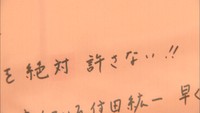 を 絶対 許さない!!
住田紘一 早く